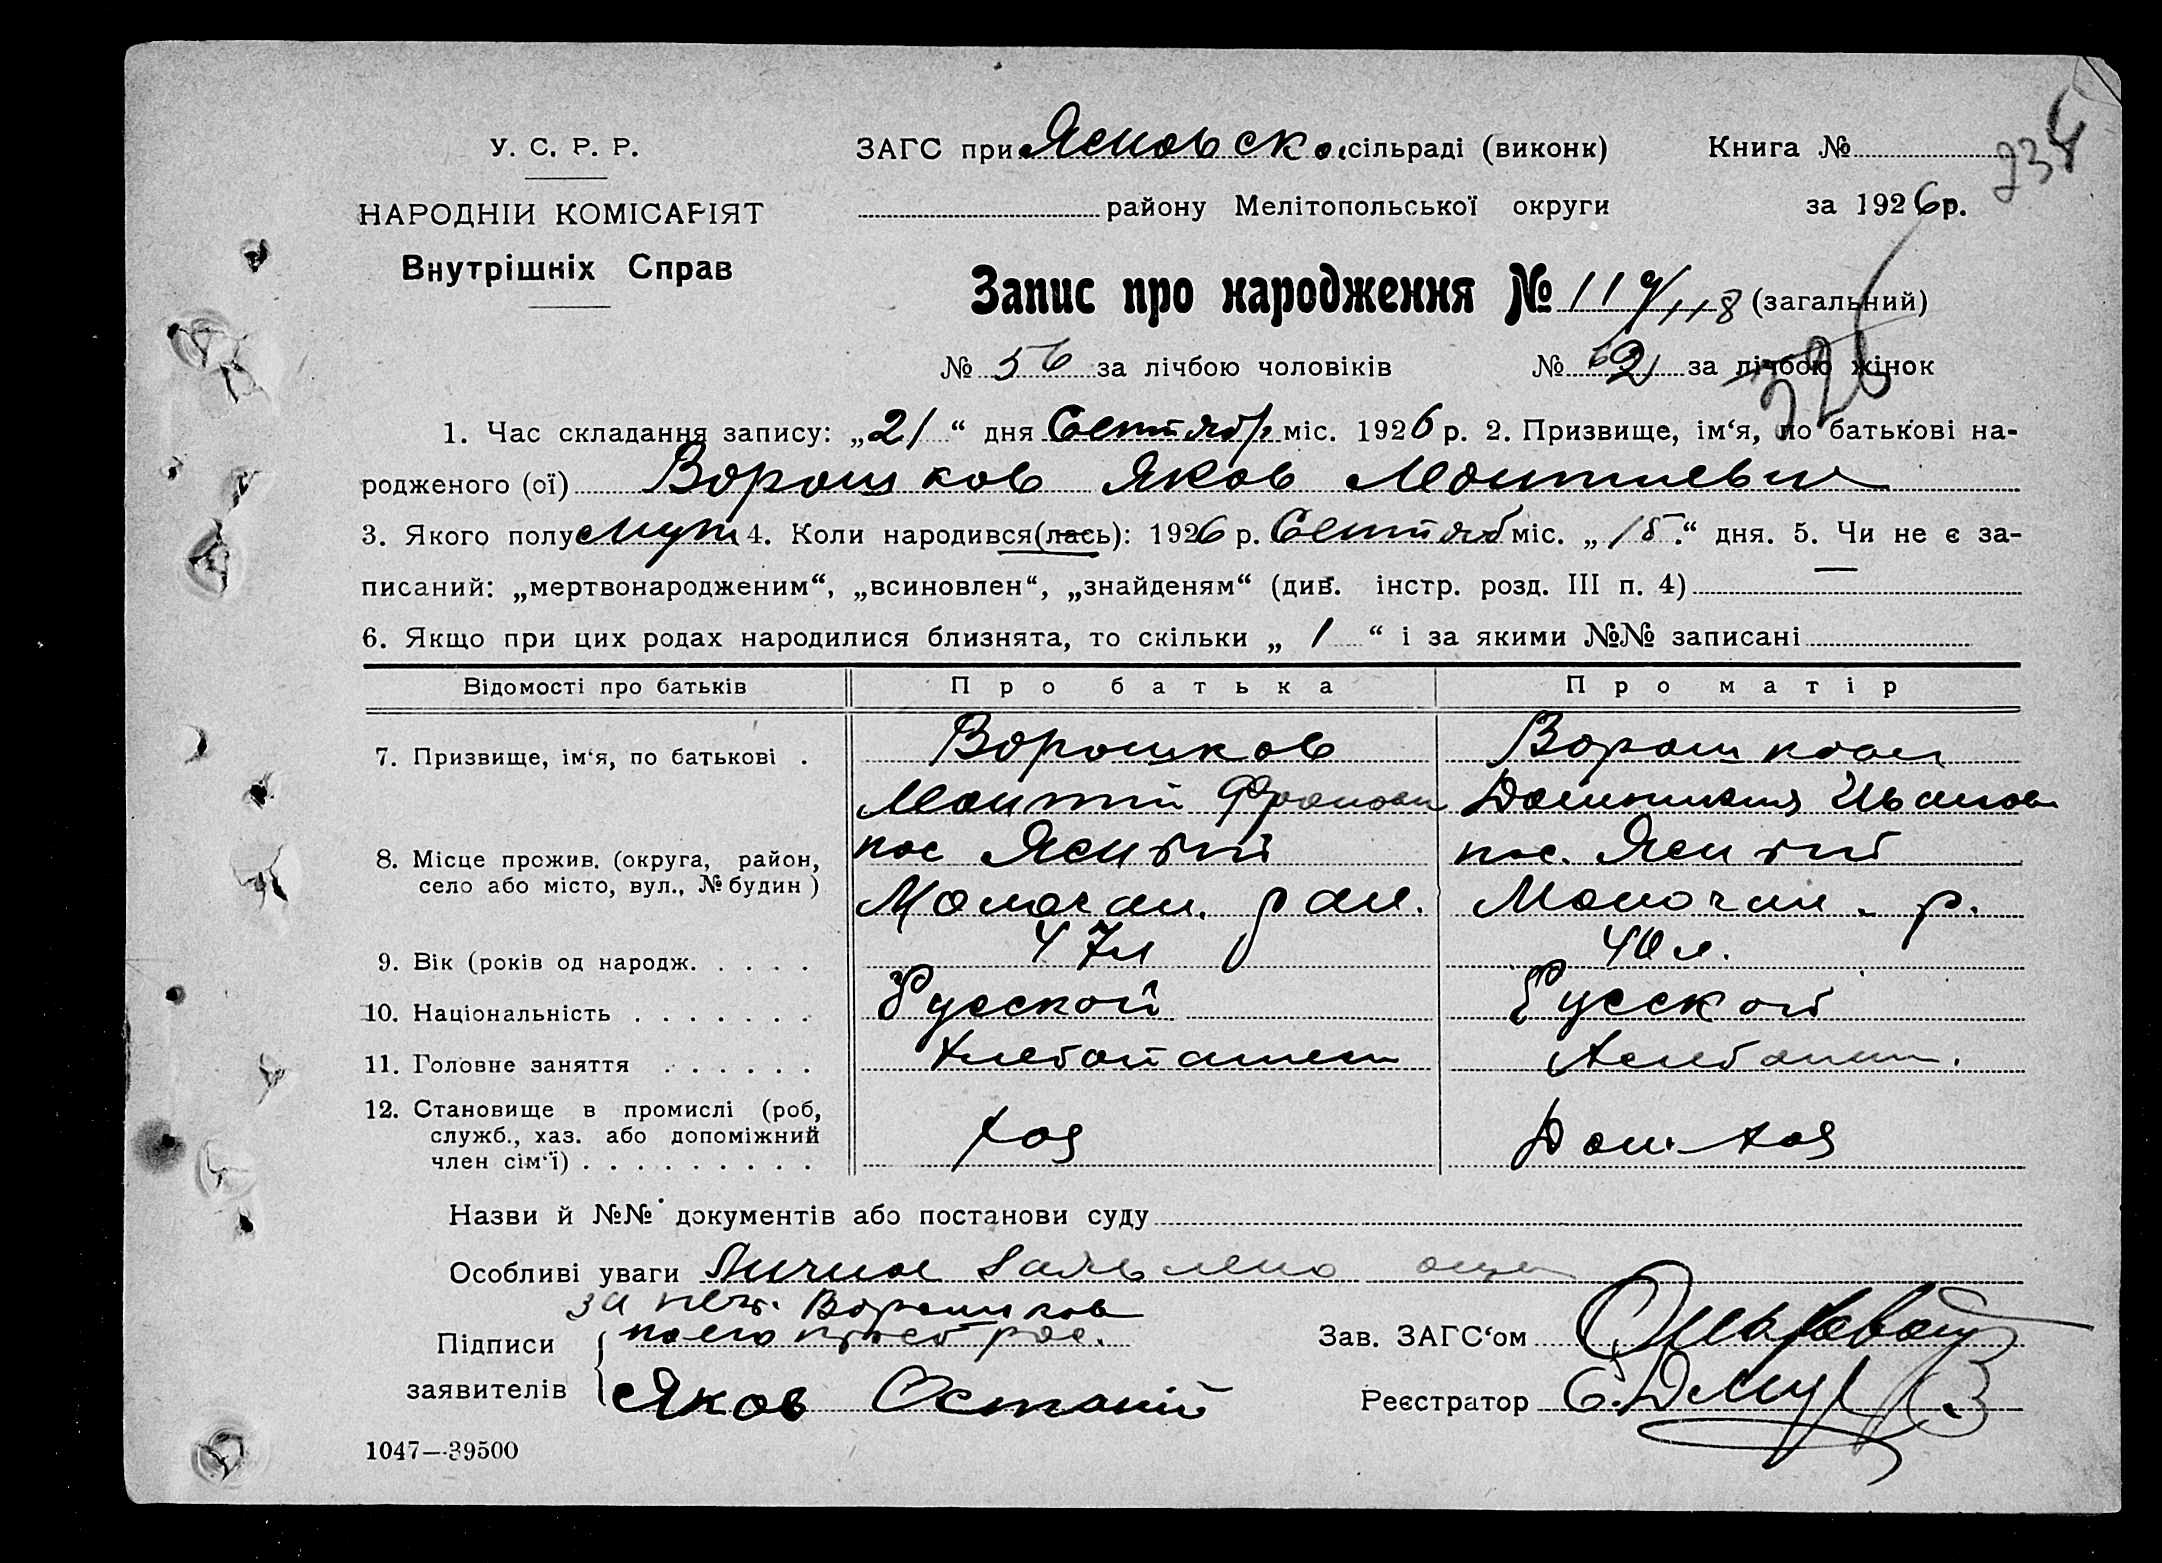 У. С. Р. Р.
НАРОДНІЙ КОМІСАРІЯТ
Внутрішніх Справ
ЗАГС при Ясновско сільраді (виконк) Книга №
району Мелітопольської округи за 1926 р.
234
Запис про народження № 119/118 (загальний)
№ 56 за лічбою чоловіків № 62 за лічбою жінок
326
1. Час складання запису: „21“ дня Сентябр міс. 1926 р. 2. Призвище, ім‘я, по батькові на-
родженого (ої) Ворошков Яков
3. Якого полу муж 4. Коли народився(лась): 1926 р. Сентяб міс. „15“ дня. 5. Чи не є за-
писаний: „мертвонародженим“, „всиновлен“, „знайденям“ (див. інстр. розд. III п. 4) —
6. Якщо при цих родах народилися близнята, то скільки „ 1 “ і за якими №№ записані
Відомості про батьків Про батька Про матір
7. Призвище, ім‘я, по батькові . Ворошков Ворошкова
Иванов
8. Місце прожив. (округа, район, пос Ясный пос. Ясный
село або місто, вул., № будин ) Молочан. рай. Молочан. р.
9. Вік (років од народж. . . . . 47 л 40 л.
10. Національність . . . . . . . Русской Русской
11. Головне заняття . . . . . . Хлебопашец Хлебопаш.
12. Становище в промислі (роб, хоз Дом. хоз
служб., хаз. або допоміжний
член сім‘ї) . . . . . . . . .
Назви й №№ документів або постанови суду
Особливі уваги Личное заявлено отца
за нег. Ворошков
Підписи по его прось рос. Зав. ЗАГС‘ом
заявителів Яков Реєстратор
1047—39500